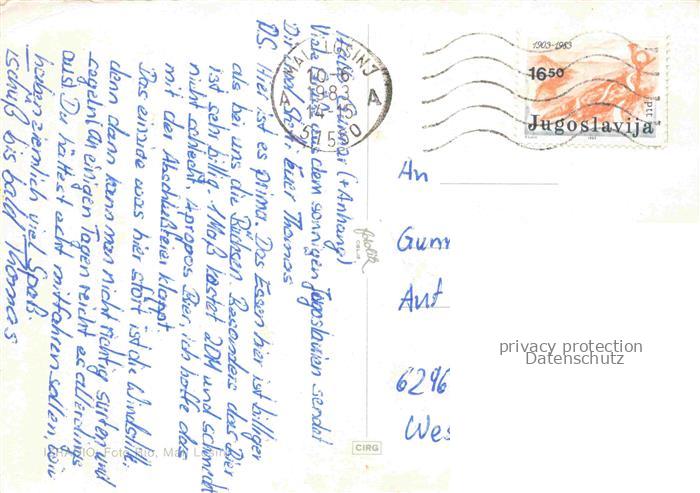 Hallo Gunnar (+Anhang)
Viele aus dem sonnigen Jugoslawien sendet
Dir und Euer Thomas
PS. Hier ist es prima. Das Essen hier ist billiger
als bei uns die Büchsen. Besonders das Bier
ist sehr billig 1 Maß kostet 2DM und schmeckt
nicht schlecht. Apropos Bier, ich hoffe das
mit der Abschlußfeier klappt.
Das einzige was hier stört ist die Windstille
denn dann kann man nicht richtig surfen und
segeln. An einigen Tagen reicht es allerdings
aus. Du hättest echt mitfahren sollen, wir
haben ziemlich viel Spaß.
Tschüß bis bald Thomas
MALI LOŠINJ
10-6
1983
A A
1903-1983
16 50
ptt
Jugoslavija
An
Gunn
Auf
6296
Wes
privacy protection
Datenschutz
CIRG